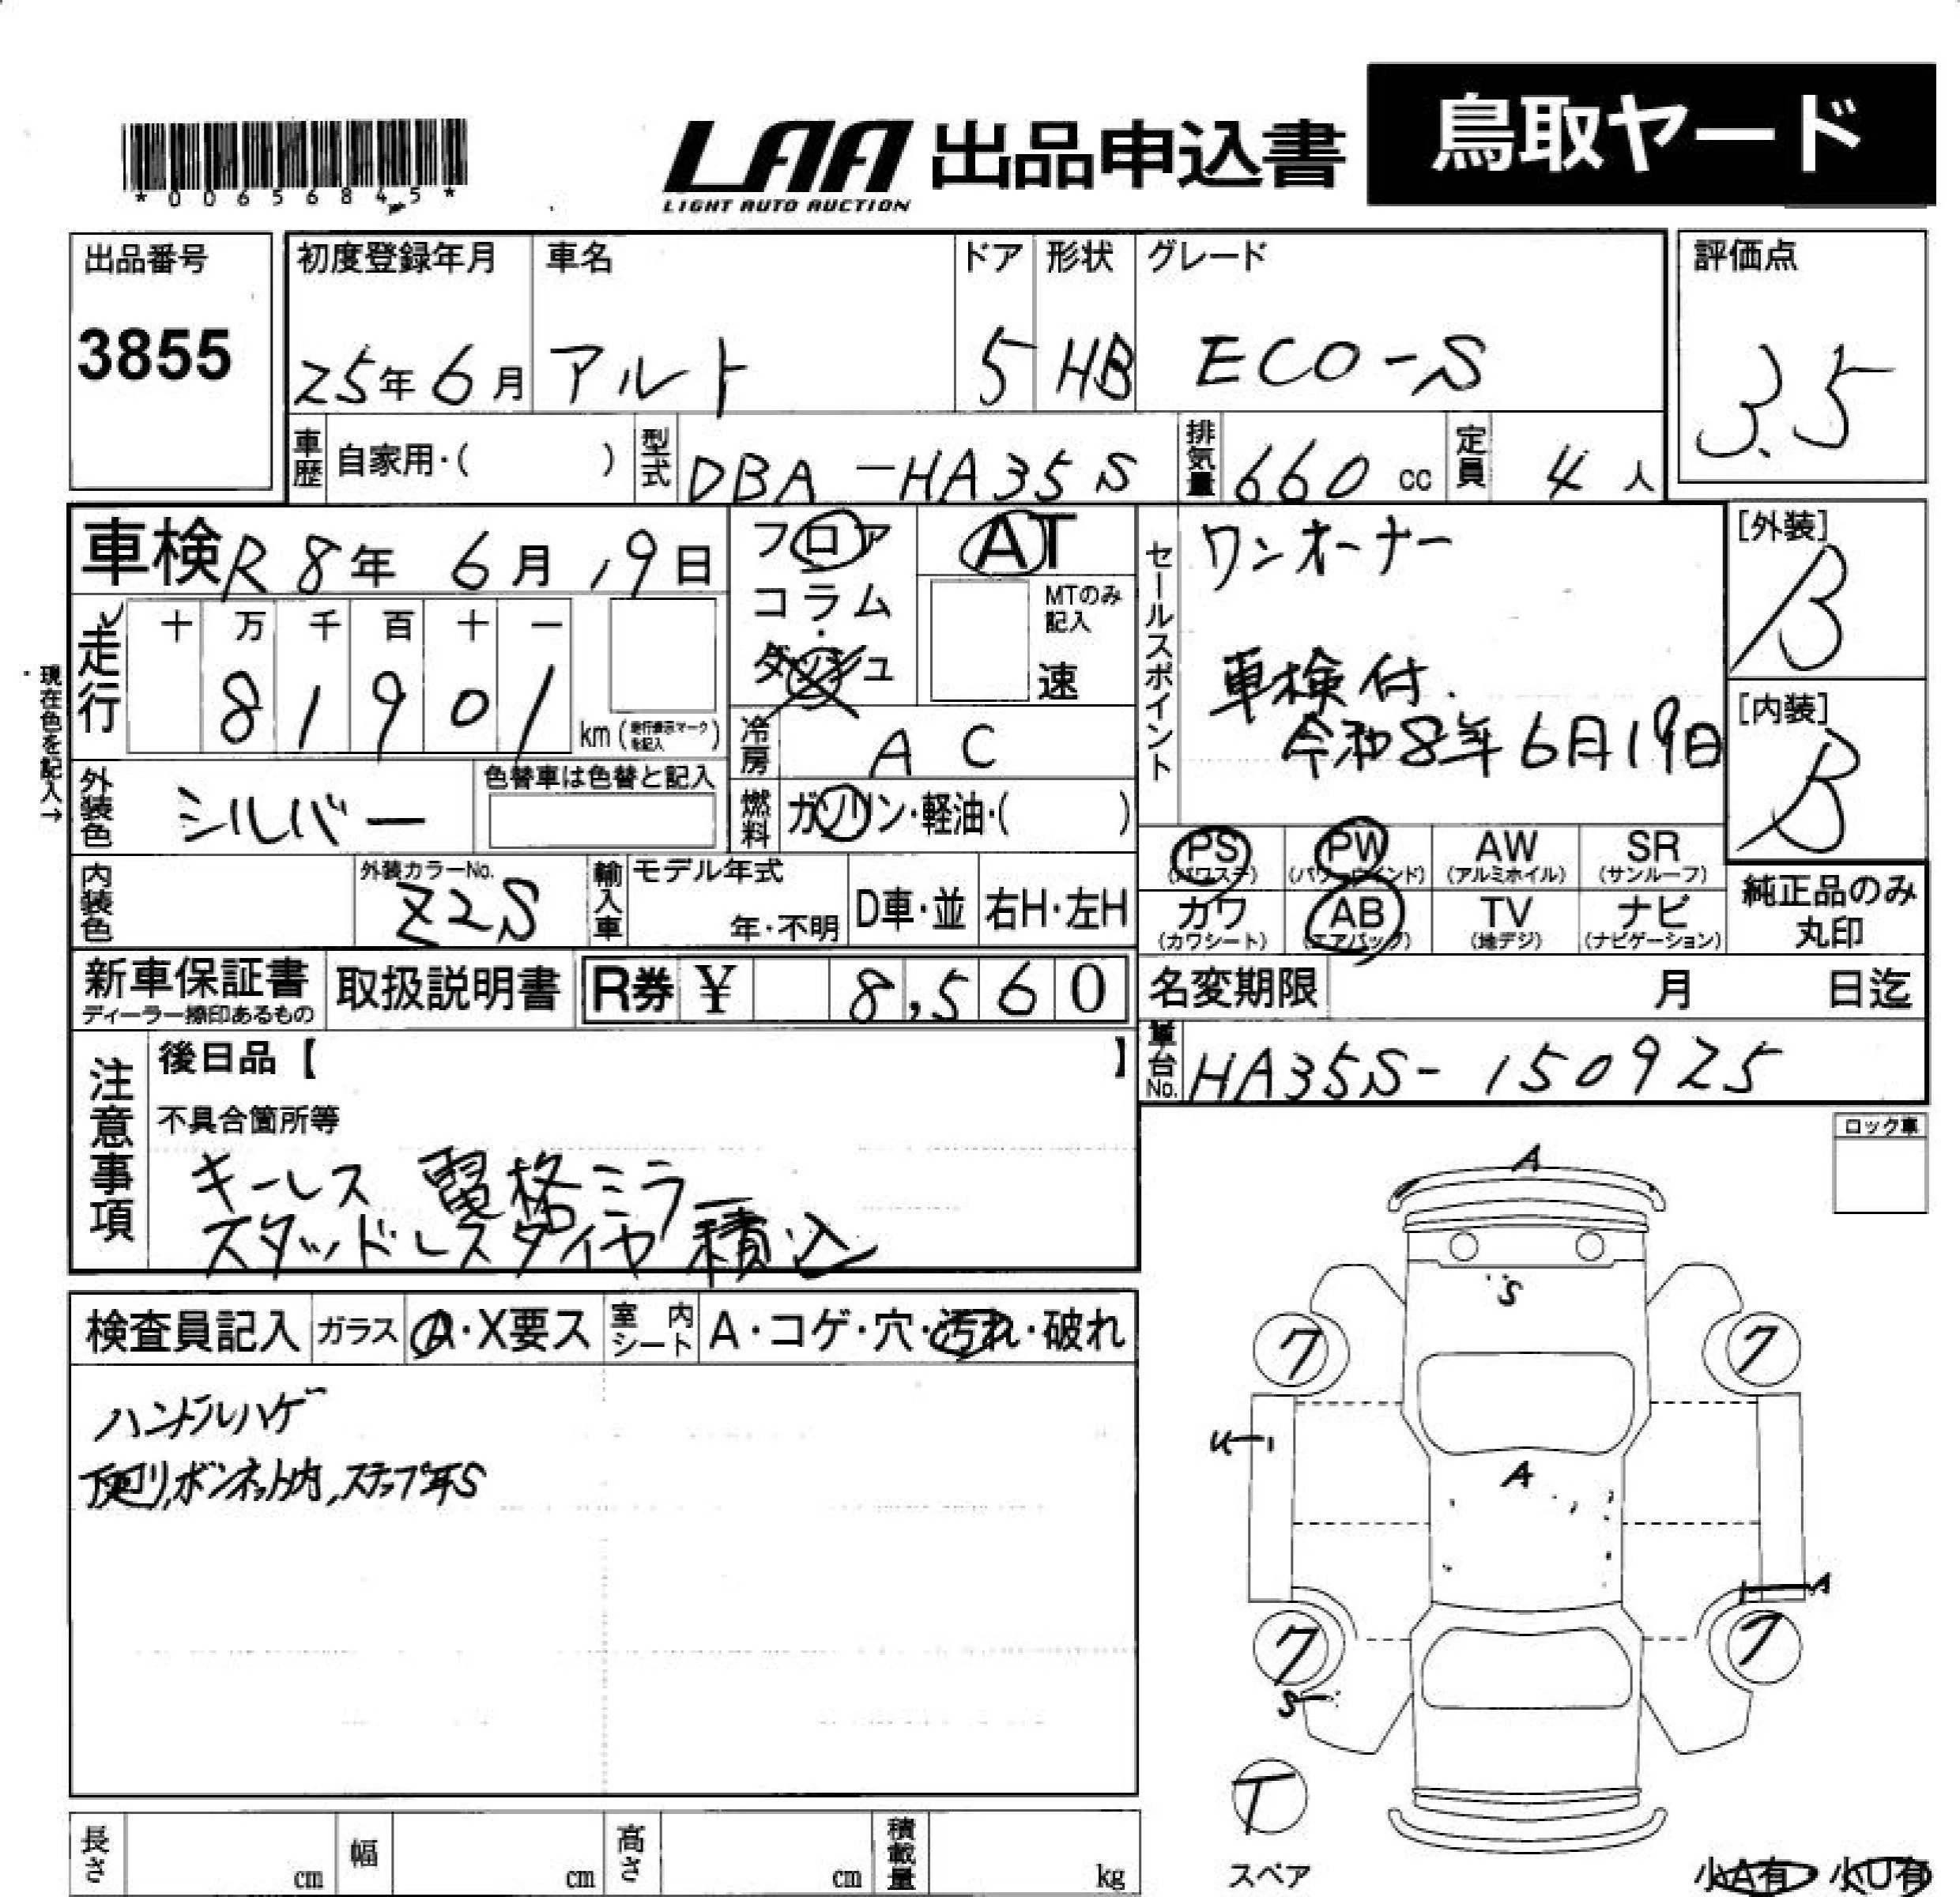 *0065684 5*
LAA 出品申込書 鳥取ヤード
LIGHT AUTO AUCTION
出品番号 初度登録年月 車名 ドア 形状 グレード 評価点
3855 25年6月 アルト 5 HB ECO-S 3.5
車歴 自家用・( ) 型式 DBA-HA35S 排気量 660 cc 定員 4人
車検 R8年 6月 19日 フロア AT
コラム・ダッシュ MTのみ記入 速
走行 十 万 千 百 十 一
8 1 9 0 1 km (走行表示マークを記入)
現在色を記入→
冷房 AC
外装色 シルバー 色替車は色替と記入
燃料 ガソリン・軽油・( )
セールスポイント ワンオーナー
車検付.
令和8年6月19日
[外装] B
[内装] B
PS (パワステ) PW (パワーウインド) AW (アルミホイル) SR (サンルーフ)
カワ (カワシート) AB (エアバッグ) TV (地デジ) ナビ (ナビゲーション)
純正品のみ丸印
内装色 外装カラーNo. Z2S 輸入車 モデル年式 年・不明 D車・並 右H・左H
新車保証書 取扱説明書 R券 ¥ 8,560
ディーラー捺印あるもの
名変期限 月 日迄
車台No. HA35S-150925
注意事項 後日品【 】
不具合箇所等
キーレス 電格ミラー
スタッドレスタイヤ 積込
ロック車
検査員記入 ガラス A・X要ス 室内シート A・コゲ・穴・汚れ・破れ
ハンドルハゲ
下廻り,ボンネット内,ステップ等S
A
S
ク ク
U
A
A
ク ク
S
T
スペア
小A有・小U有
長さ cm 幅 cm 高さ cm 積載量 kg